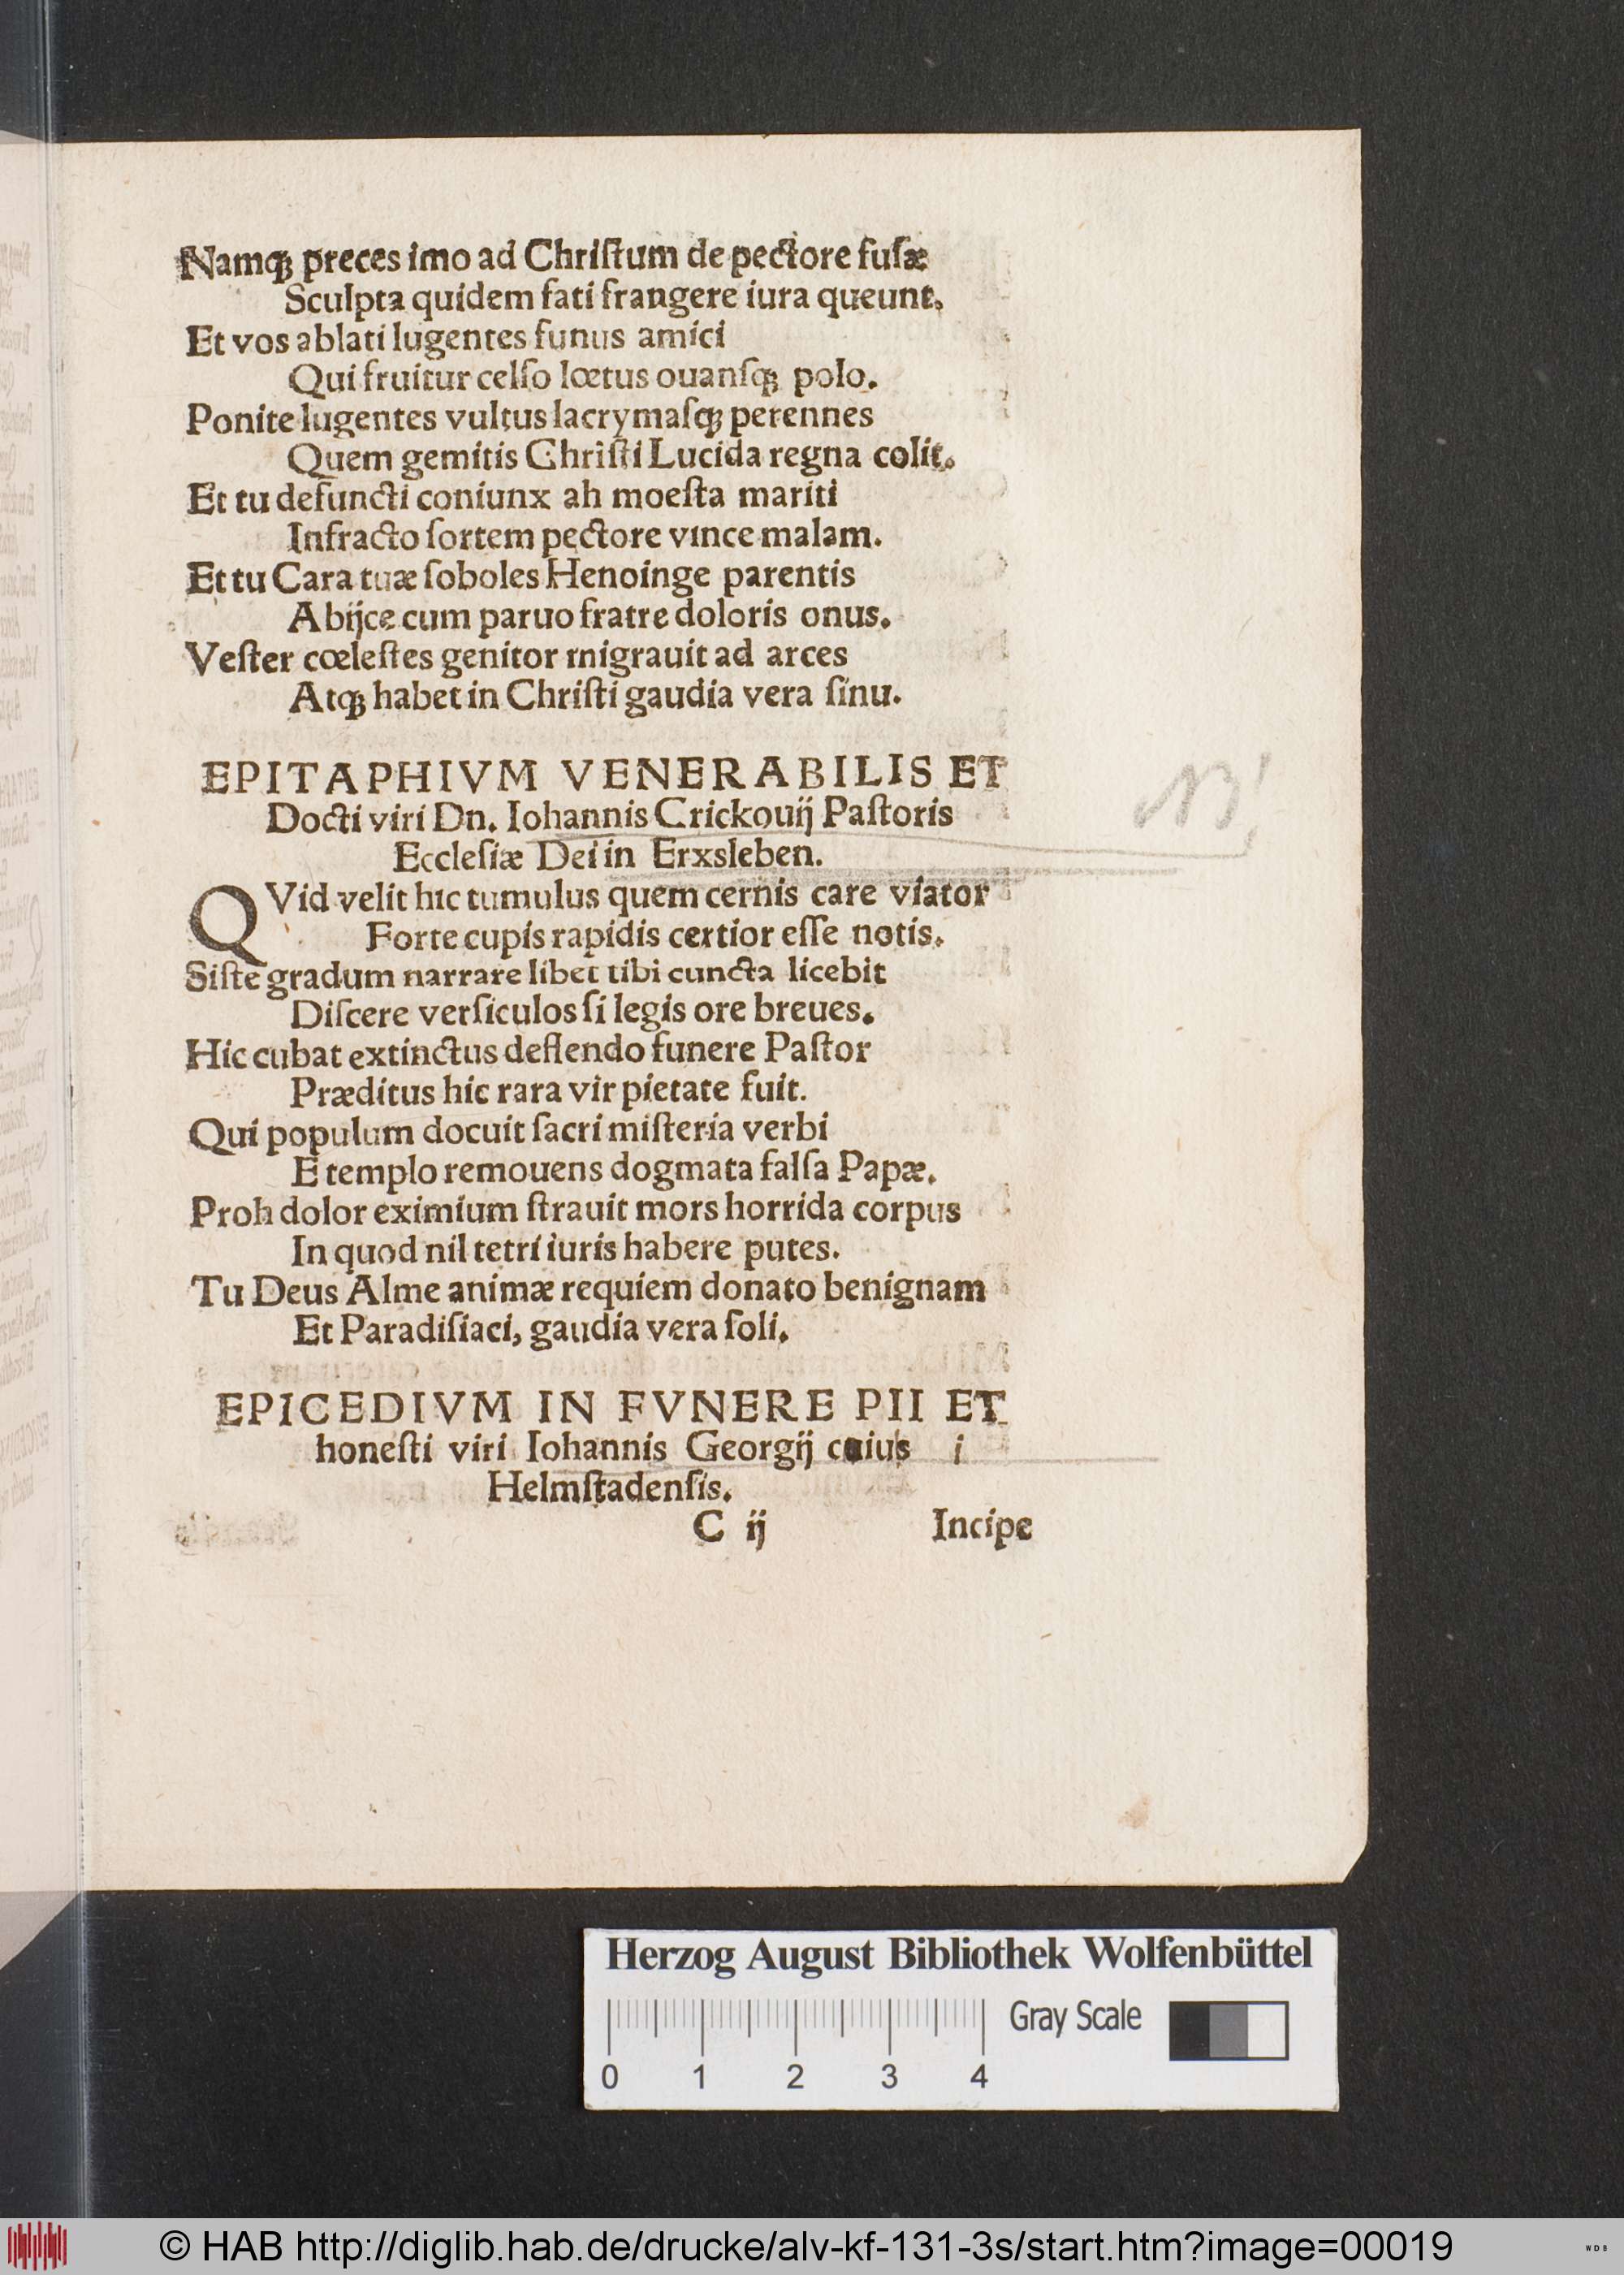 Namq; preces imo ad Chriſtum de pectore fuſæ
Sculpta quidem fati frangere iura queunt,
Et vos ablati lugentes funus amici
Qui fruitur celſo lœtus ouanſq; polo.
Ponite lugentes vultus lacrymaſq; perennes
Quem gemitis Chriſti Lucida regna colit.
Et tu defuncti coniunx ah moeſta mariti
Infracto ſortem pectore vince malam.
Et tu Cara tuæ ſoboles Henoinge parentis
Abijce cum paruo fratre doloris onus.
Veſter cœleſtes genitor migrauit ad arces
Atq; habet in Chriſti gaudia vera ſinu.
EPITAPHIVM VENERABILIS ET
Docti viri Dn. Iohannis Crickouij Paſtoris
Eccleſiæ Dei in Erxsleben.
NB!
QVid velit hic tumulus quem cernis care viator
Forte cupis rapidis certior eſſe notis.
Siſte gradum narrare libet tibi cuncta licebit
Diſcere verſiculos ſi legis ore breues.
Hic cubat extinctus deflendo funere Paſtor
Præditus hic rara vir pietate fuit.
Qui populum docuit ſacri miſteria verbi
E templo remouens dogmata falſa Papæ.
Proh dolor eximium ſtrauit mors horrida corpus
In quod nil tetri iuris habere putes.
Tu Deus Alme animæ requiem donato benignam
Et Paradiſiaci, gaudia vera ſoli.
EPICEDIVM IN FVNERE PII ET
honeſti viri Iohannis Georgij cuius i
Helmſtadenſis.
C ij Incipe
Herzog August Bibliothek Wolfenbüttel
Gray Scale
0 1 2 3 4
© HAB http://diglib.hab.de/drucke/alv-kf-131-3s/start.htm?image=00019
WDB